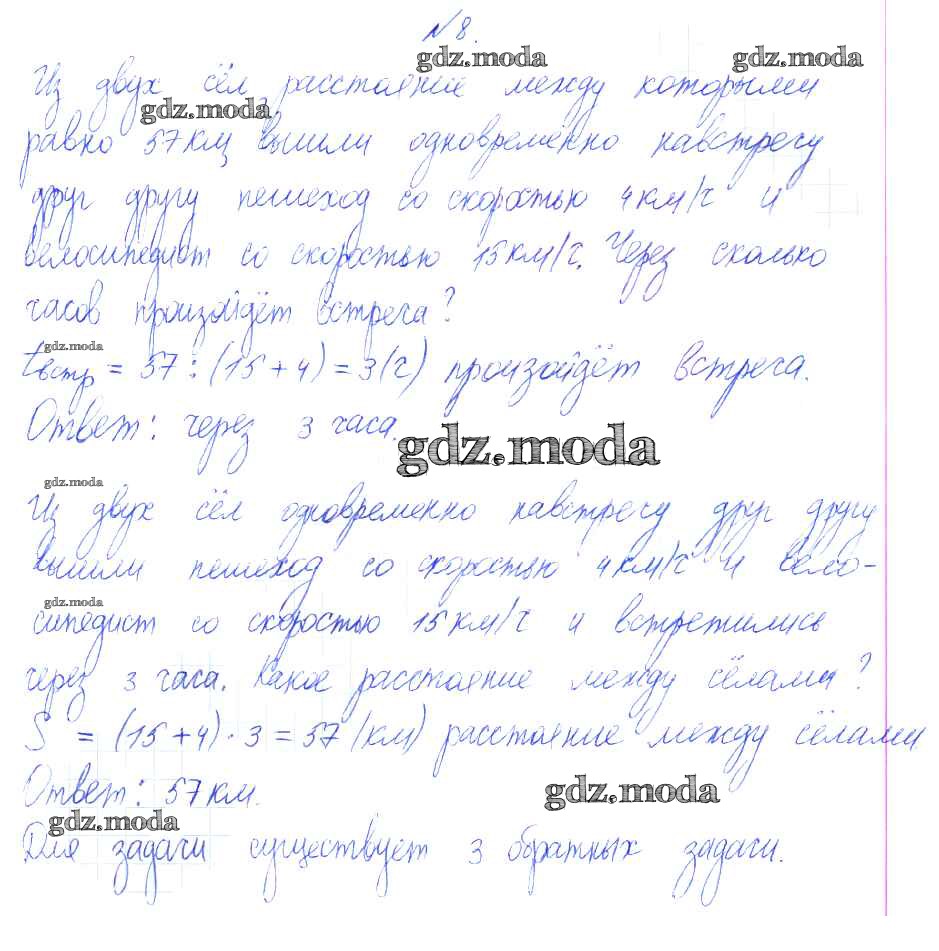 №8.
gdz.moda gdz.moda
Из двух сёл, расстояние между которыми
gdz.moda
равно 57 км, вышли одновременно навстречу
друг другу пешеход со скоростью 4 км/ч и
велосипедист со скоростью 15 км/ч. Через сколько
часов произойдёт встреча?
gdz.moda
tвстр = 57 : (15 + 4) = 3 (ч) произойдёт встреча.
Ответ: через 3 часа.
gdz.moda
gdz.moda
Из двух сёл одновременно навстречу друг другу
вышли пешеход со скоростью 4 км/ч и вело-
gdz.moda
сипедист со скоростью 15 км/ч и встретились
через 3 часа. Какое расстояние между сёлами?
S = (15 + 4) · 3 = 57 (км) расстояние между сёлами
Ответ: 57 км.
gdz.moda
gdz.moda
Для задачи существует 3 обратных задачи.